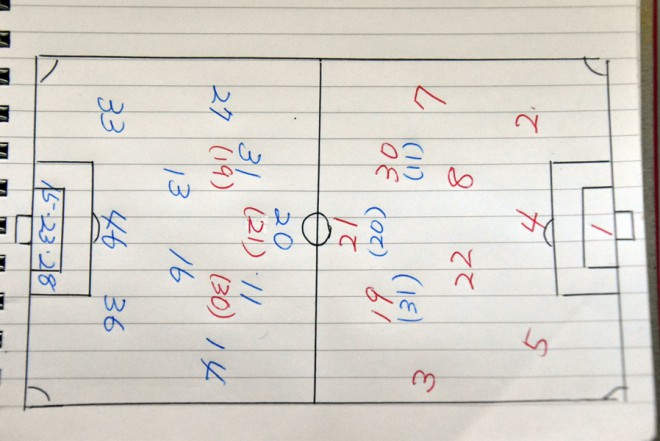 1
2 4 5
8 22
7 3
(11) (31)
30 19
(20)
21
20
(21)
31 11
(19) (30)
27 14
13 16
33 46 36
15·23·28